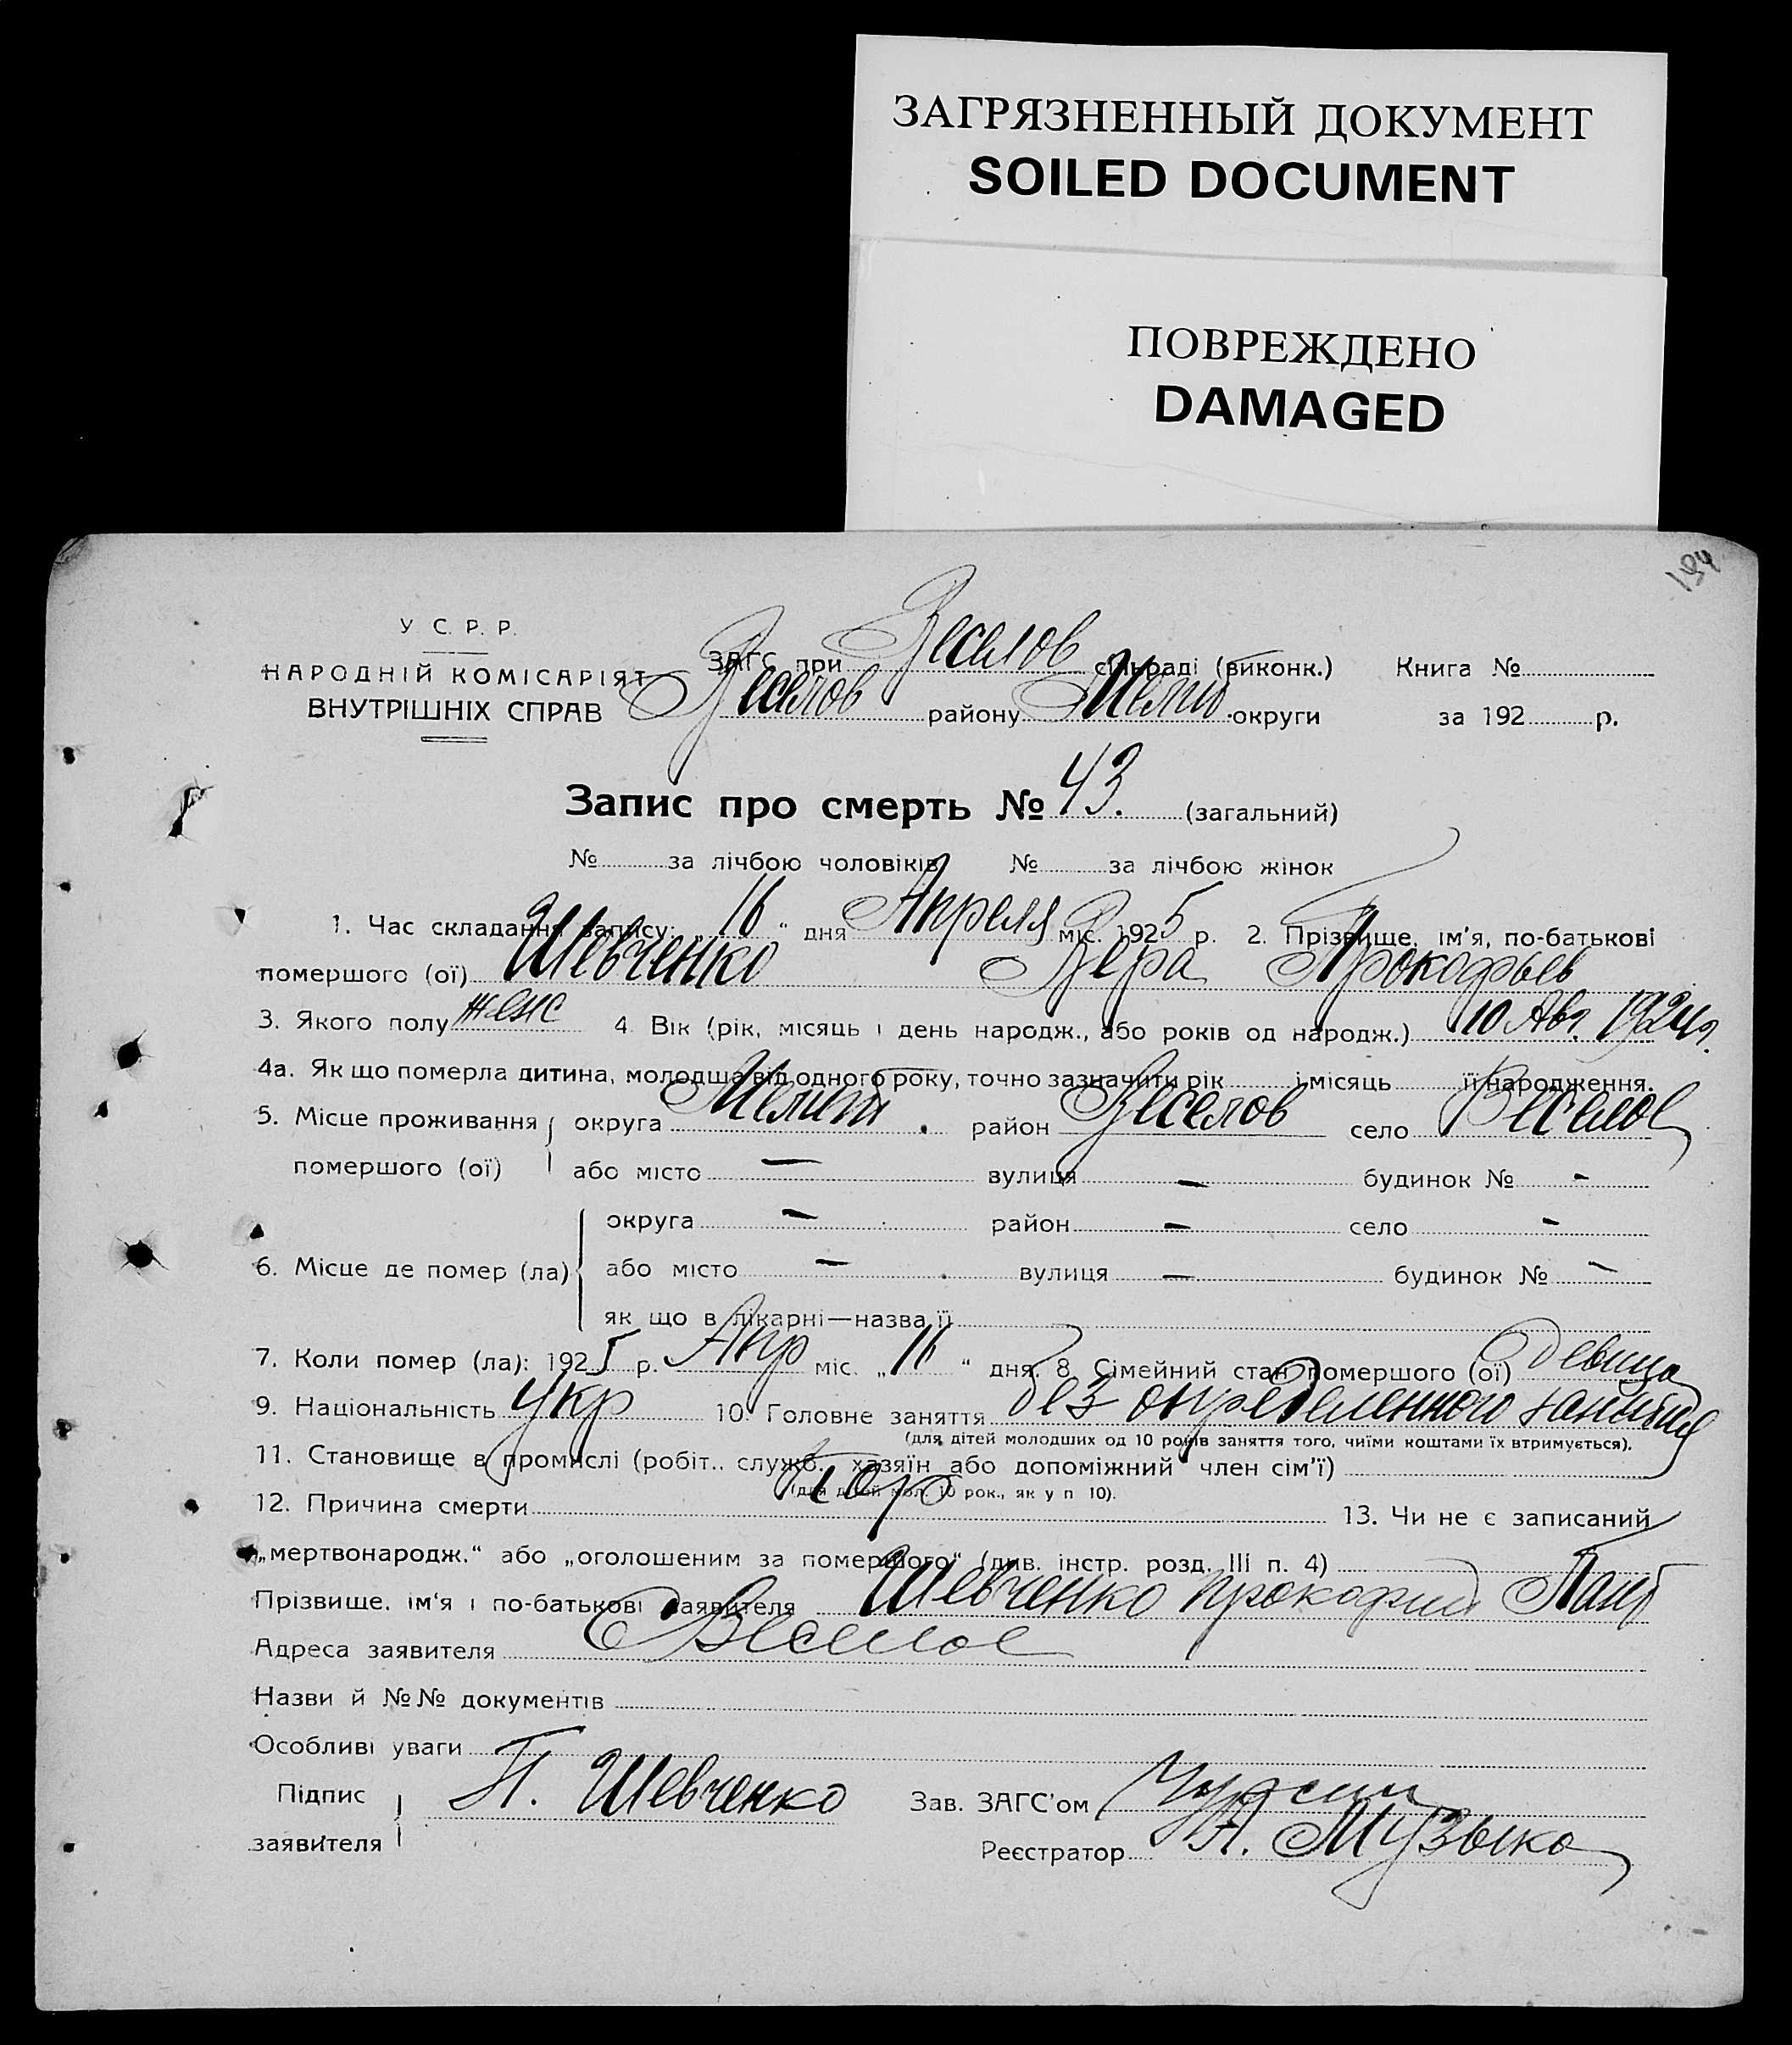 ЗАГРЯЗНЕННЫЙ ДОКУМЕНТ
SOILED DOCUMENT
ПОВРЕЖДЕНО
DAMAGED
194
У С. Р. Р.
НАРОДНІЙ КОМІСАРІЯТ
ВНУТРІШНІХ СПРАВ
ЗАГС при Веселов сільраді (виконк.) Книга №
Веселов району Мелит округи за 192 р.
Запис про смерть № 43. (загальний)
№ за лічбою чоловіків № за лічбою жінок
1. Час складання запису: „16“ дня Апреля міс. 1925 р. 2. Прізвище, ім'я, по-батькові
помершого (ої) Шевченко Вера Прокофьев
3. Якого полу женс 4. Вік (рік, місяць і день народж., або років од народж.) 10 Авг. 1924 г.
4а. Як що померла дитина, молодша від одного року, точно зазначити рік і місяць її народження.
5. Місце проживання округа Мелит. район Веселов село Веселое
помершого (ої) або місто — вулиця — будинок № -
округа — район — село -
6. Місце де помер (ла) або місто — вулиця — будинок № —
як що в лікарні—назва її
7. Коли помер (ла): 1925 р. Апр міс. „16“ дня. 8. Сімейний стан помершого (ої) девица
9. Національність укр 10. Головне заняття без определенного занятия
(для дітей молодших од 10 років заняття того, чиїми коштами їх втримується).
11. Становище в промислі (робіт.. служб., хазяїн або допоміжний член сім'ї)
(для дітей мол. 10 рок., як у п 10).
12. Причина смерти Кор 13. Чи не є записаний
„мертвонародж.“ або „оголошеним за помершого“ (див. інстр. розд. III п. 4)
Прізвище, ім'я і по-батькові заявителя Шевченко Прокофий
Адреса заявителя С Веселое
Назви й №№ документів
Особливі уваги
Підпис П. Шевченко Зав. ЗАГС'ом
заявителя Реєстратор А. Музыка